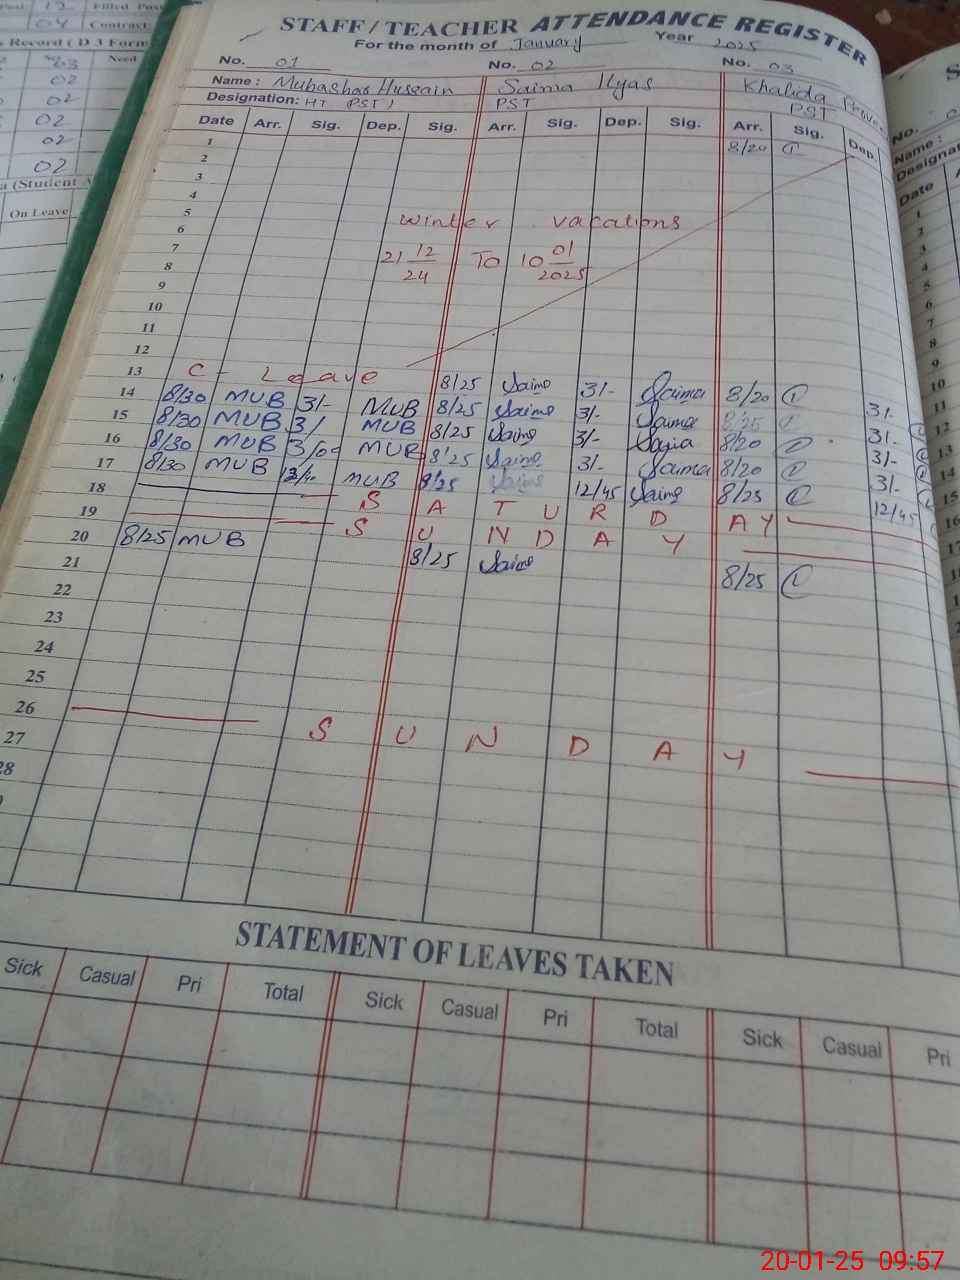 Post 12 Filled Post
04 Contract:
Record ( D 3 Form
Need
03
02
02
02
02
02
a (Student A
On Leave
STAFF / TEACHER ATTENDANCE REGISTER
For the month of January Year 2025
No. 01 No. 02 No. 03
Name : Mubashar Hussain Saima Ilyas Khalida
Designation: HT (PST) PST PST
Date Arr. Sig. Dep. Sig. Arr. Sig. Dep. Sig. Arr. Sig. Dep.
1 8/20
2
3
4
5 Winter vacations
6
7 21 12/24 To 10 01/2025
8
9
10
11
12
13 C - Leave 8/25 Saima 3/- Saima 8/20 3/-
14 8/30 MUB 3/- MUB 8/25 Saima 3/- Saima 8/25 3/-
15 8/30 MUB 3/ MUB 8/25 Saima 3/- Saima 8/20 3/-
16 8/30 MUB 3/00 MUB 8/25 Saima 3/- Saima 8/20 3/-
17 8/30 MUB MUB 8/25 Saima 12/45 Saima 8/25 12/45
18 S A T U R D A Y
19 S U N D A Y
20 8/25 MUB 8/25 Saima 8/25
21
22
23
24
25
26 S U N D A Y
27
28
STATEMENT OF LEAVES TAKEN
Sick Casual Pri Total Sick Casual Pri Total Sick Casual Pri
No.
Name :
Designat
Date
1
2
3
4
5
6
7
8
9
10
11
12
13
14
15
16
17
18
20-01-25 09:57